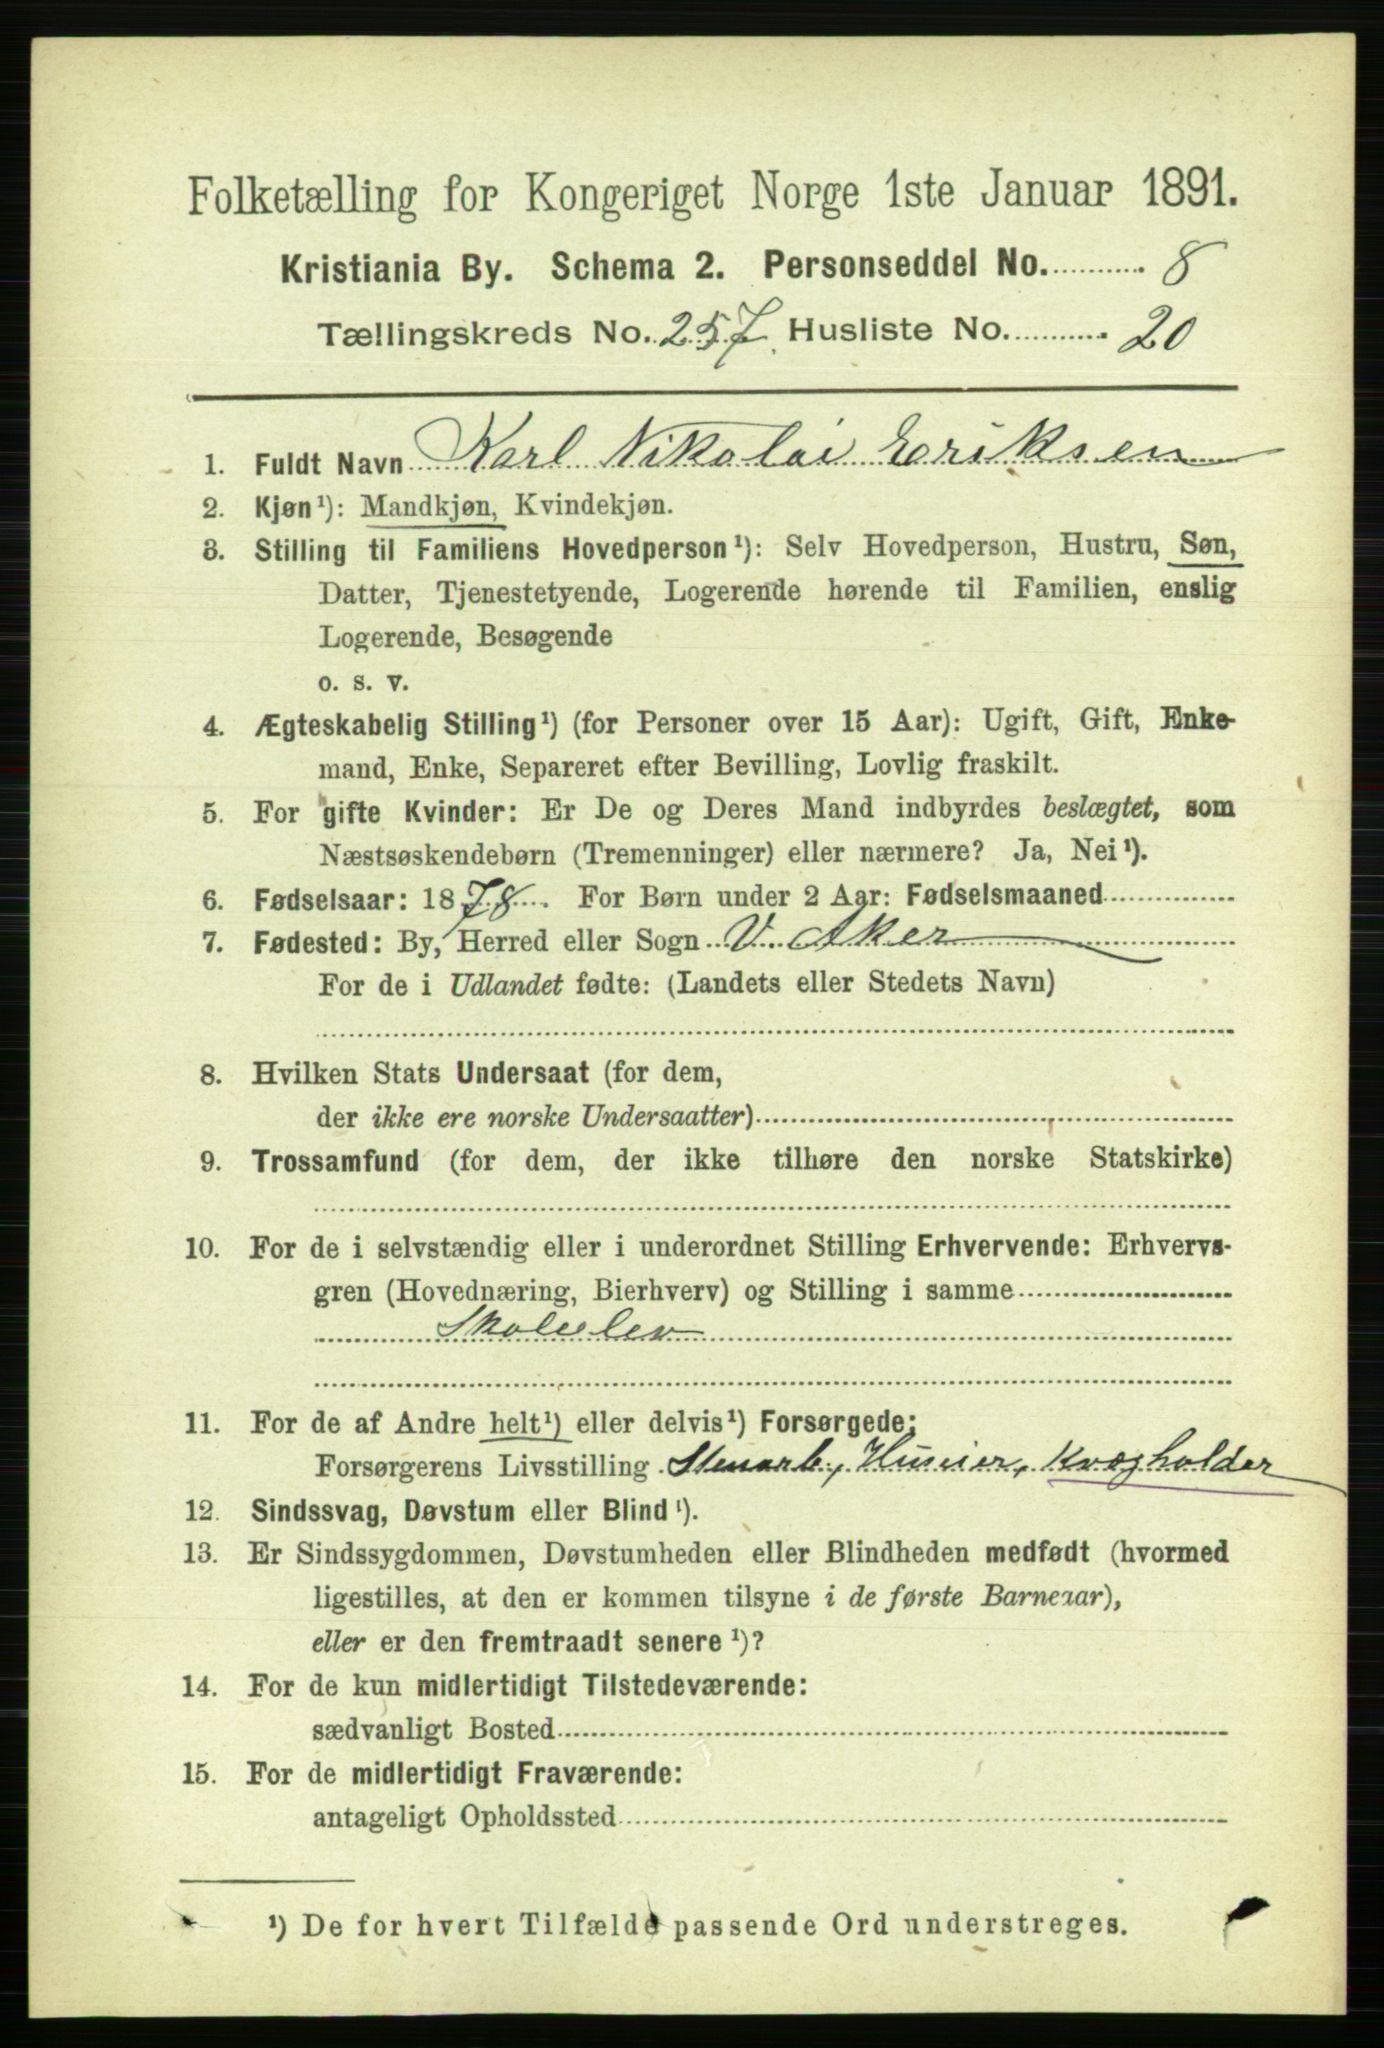 Folketælling for Kongeriget Norge 1ste Januar 1891.
Kristiania By. Schema 2. Personseddel No. 8
Tællingskreds No. 257. Husliste No. 20
1. Fuldt Navn Karl Nikolai Eriksen
2. Kjøn¹): Mandkjøn, Kvindekjøn.
3. Stilling til Familiens Hovedperson¹): Selv Hovedperson, Hustru, Søn,
Datter, Tjenestetyende, Logerende hørende til Familien, enslig
Logerende, Besøgende
o. s. v.
4. Ægteskabelig Stilling¹) (for Personer over 15 Aar): Ugift, Gift, Enke-
mand, Enke, Separeret efter Bevilling, Lovlig fraskilt.
5. For gifte Kvinder: Er De og Deres Mand indbyrdes beslægtet, som
Næstsøskendebørn (Tremenninger) eller nærmere? Ja, Nei¹).
6. Fødselsaar: 1878. For Børn under 2 Aar: Fødselsmaaned
7. Fødested: By, Herred eller Sogn V. Aker
For de i Udlandet fødte: (Landets eller Stedets Navn)
8. Hvilken Stats Undersaat (for dem,
der ikke ere norske Undersaatter)
9. Trossamfund (for dem, der ikke tilhøre den norske Statskirke)
10. For de i selvstændig eller i underordnet Stilling Erhvervende: Erhvervs-
gren (Hovednæring, Bierhverv) og Stilling i samme
Skoleelev
11. For de af Andre helt¹) eller delvis¹) Forsørgede:
Forsørgerens Livsstilling Stenarb., Huseier, Kvægholder
12. Sindssvag, Døvstum eller Blind¹).
13. Er Sindssygdommen, Døvstumheden eller Blindheden medfødt (hvormed
ligestilles, at den er kommen tilsyne i de første Barneaar),
eller er den fremtraadt senere¹)?
14. For de kun midlertidigt Tilstedeværende:
sædvanligt Bosted
15. For de midlertidigt Fraværende:
antageligt Opholdssted
¹) De for hvert Tilfælde passende Ord understreges.